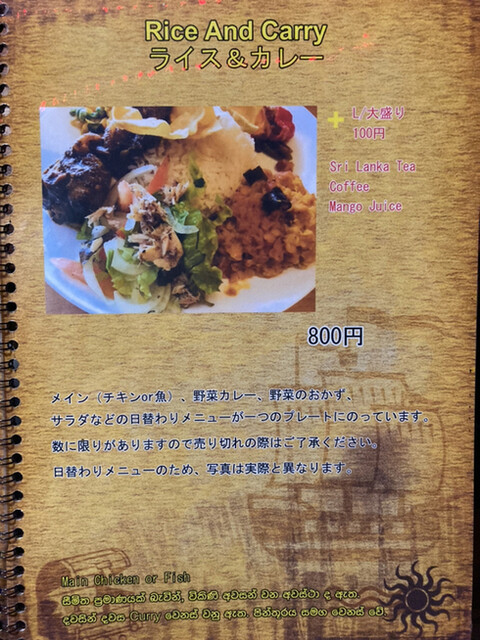 Rice And Carry
ライス＆カレー
+ L/大盛り
100円
Sri Lanka Tea
Coffee
Mango Juice
800円
メイン（チキンor魚）、野菜カレー、野菜のおかず、
サラダなどの日替わりメニューが一つのプレートにのっています。
数に限りがありますので売り切れの際はご了承ください。
日替わりメニューのため、写真は実際と異なります。
Main Chicken or Fish
සීමිත ප්‍රමාණයක් බැවින්, විකිණි අවසන් වන අවස්ථා ද ඇත.
දවසින් දවස Curry වෙනස් වනු ඇත. පින්තූරය සමග වෙනස් වේ.